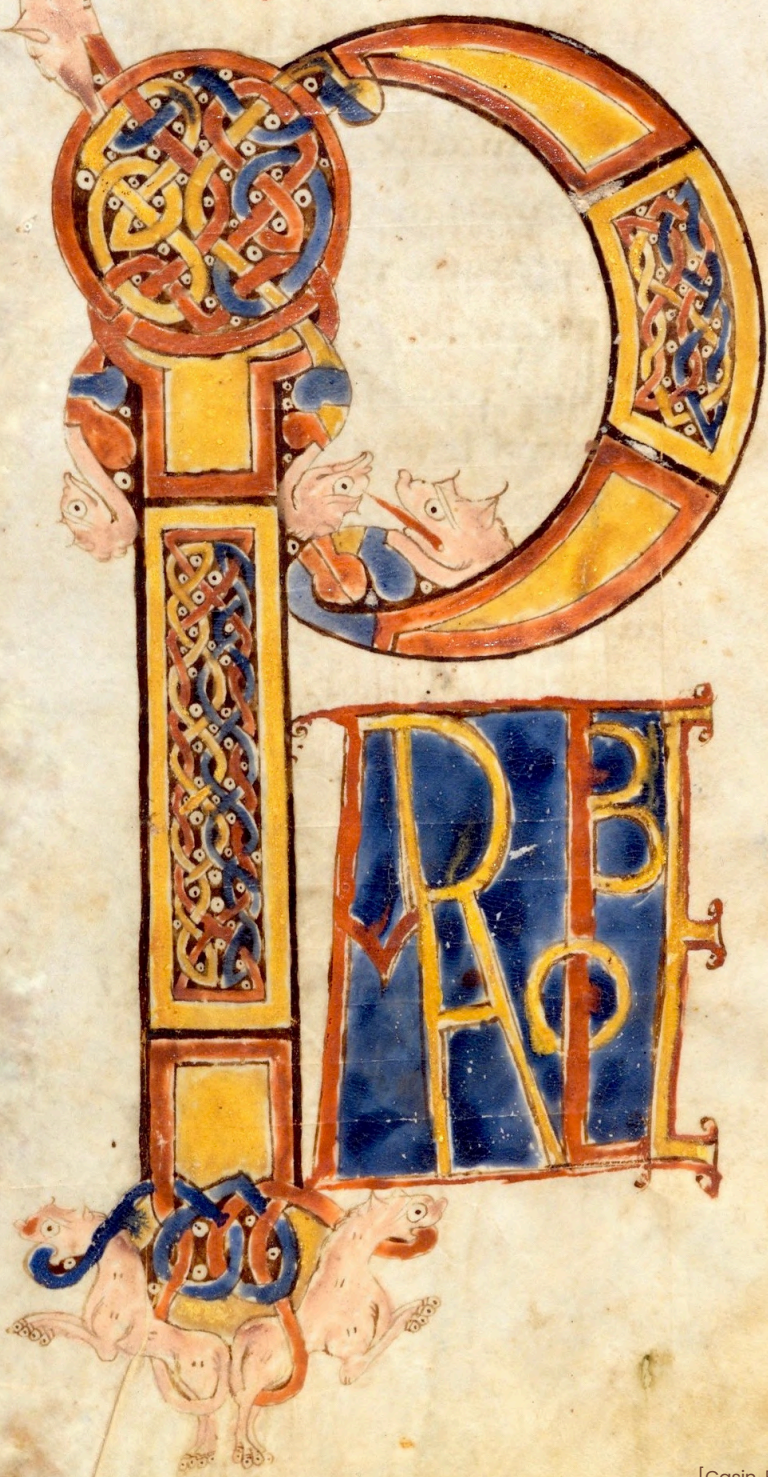 PARABOLE
[Casin.